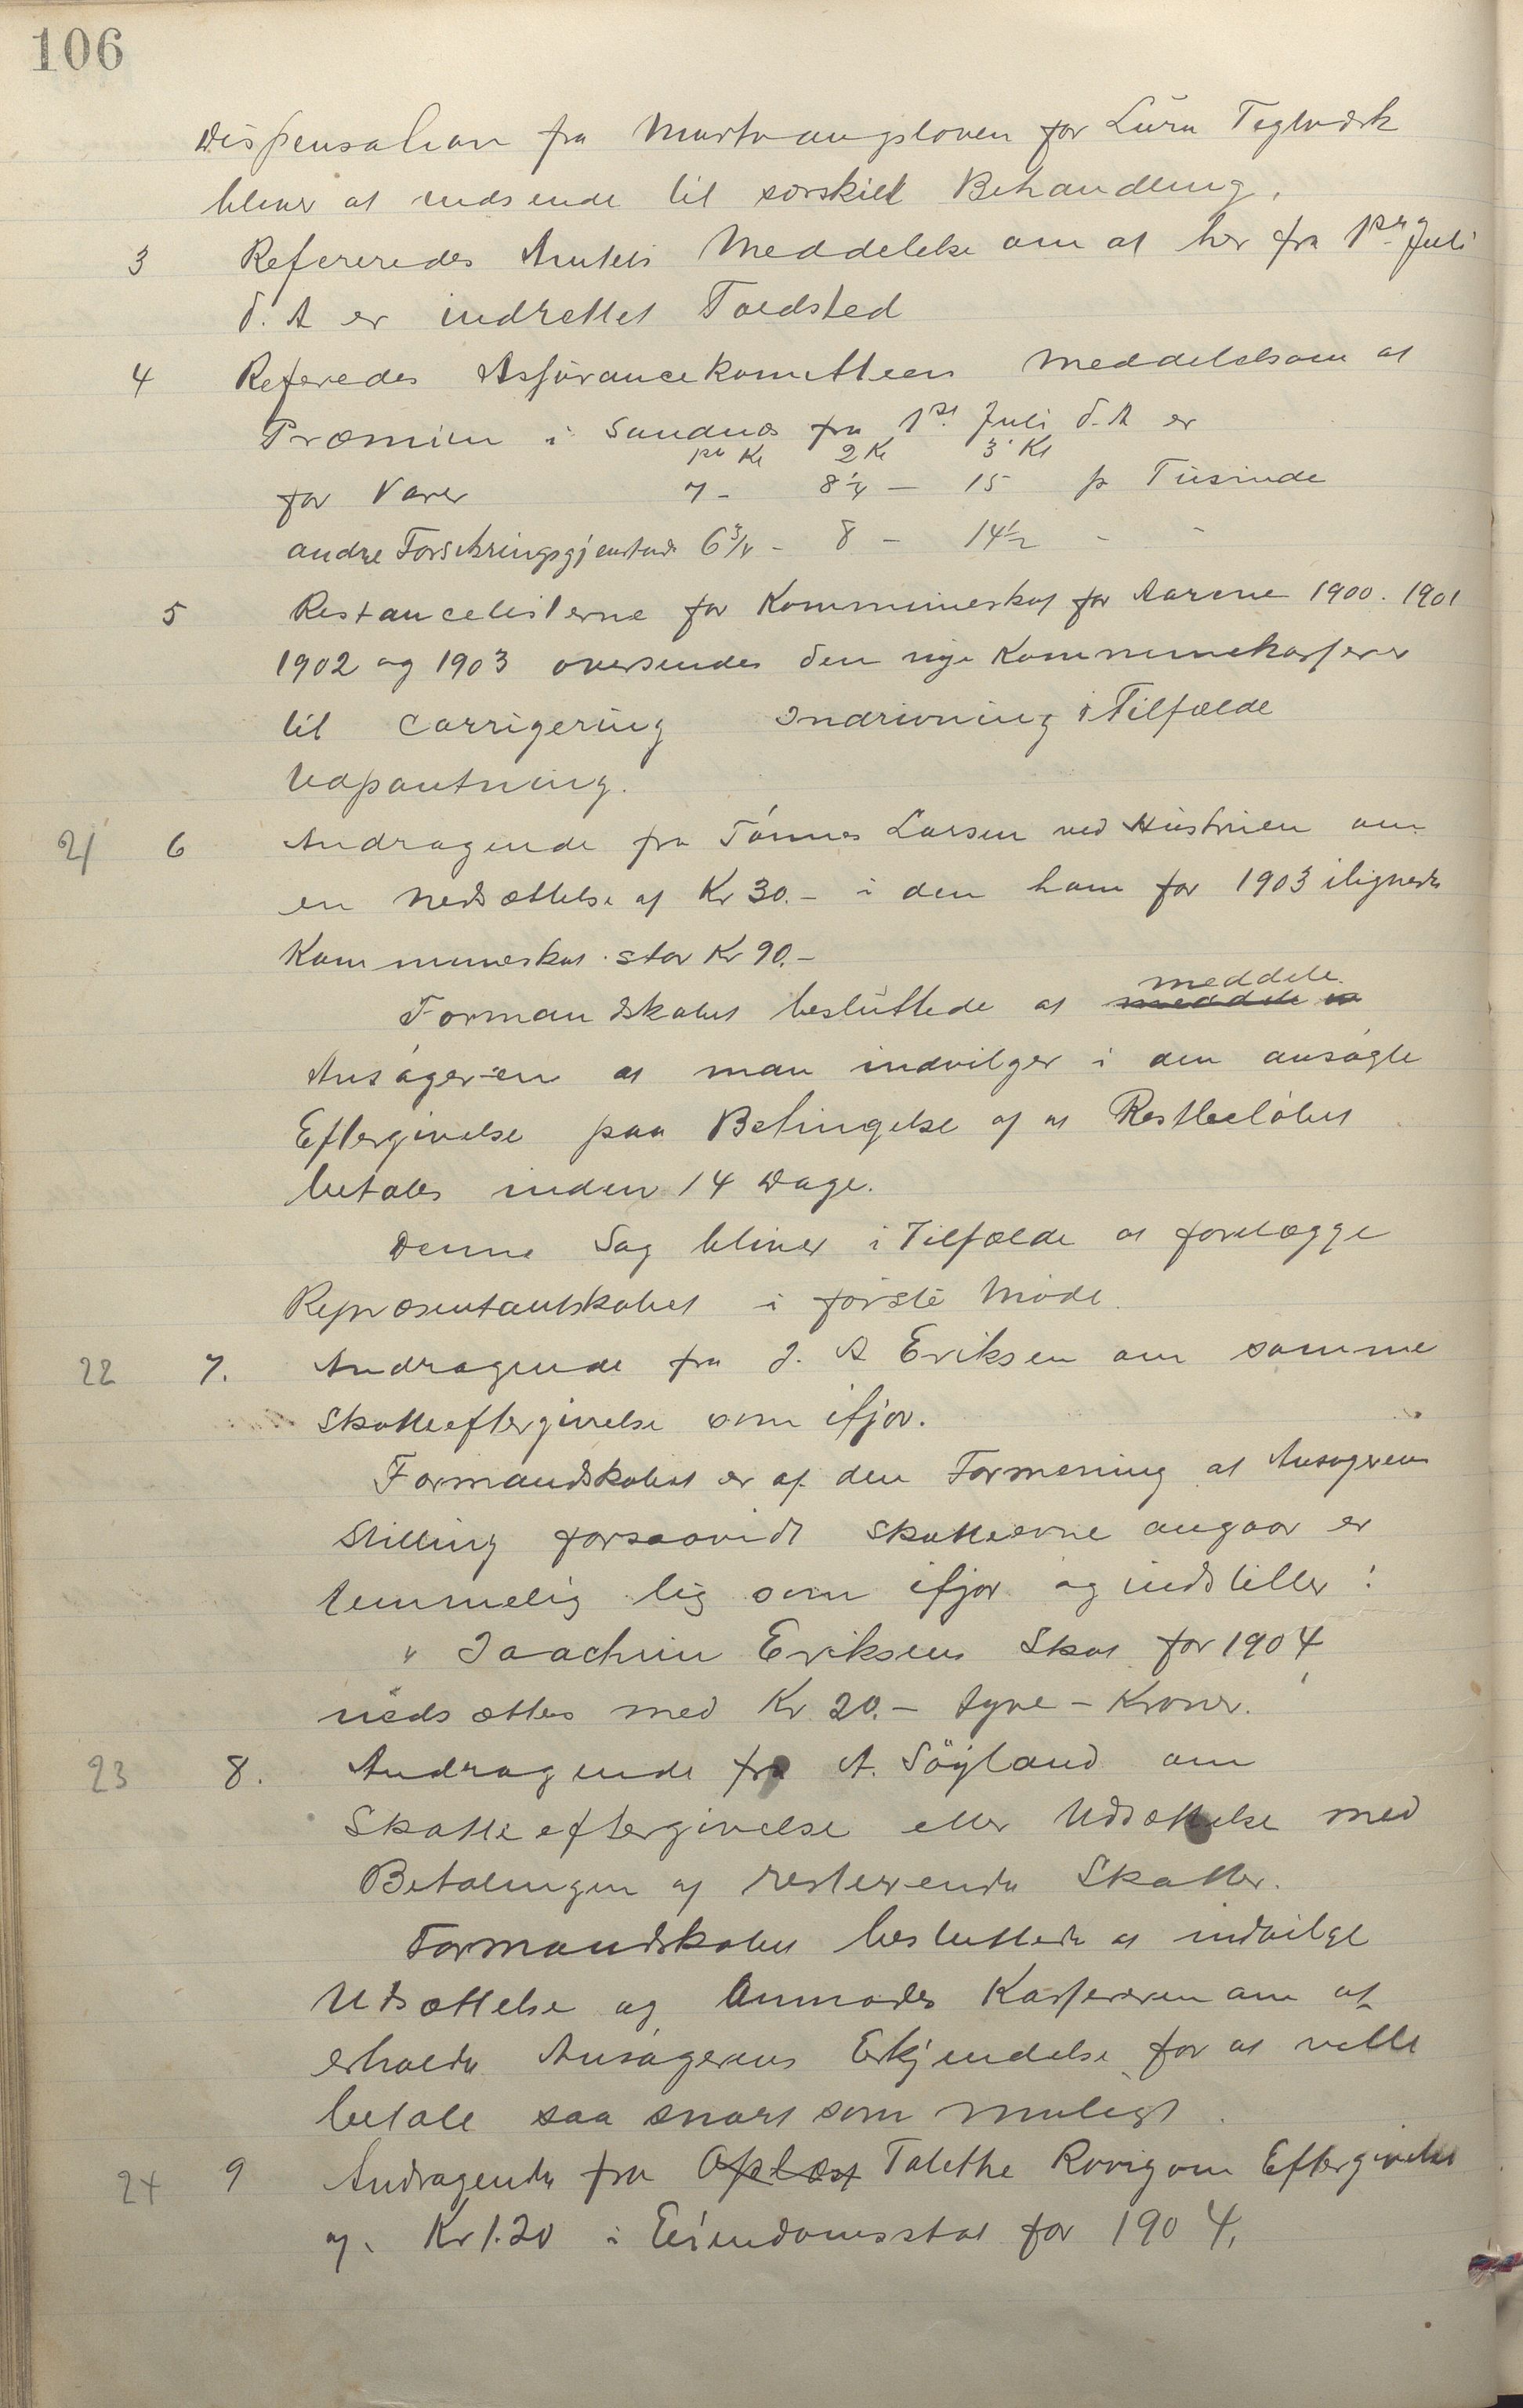 106
Dispensation fra Murtvangsloven for Lura Teglværk
bliver at indsende til særskilt Behandling.
3 Refereredes Amtets Meddelelse om at her fra 1ste Juli
d. A er indrettet Toldsted
4 Referedes Assurancekomitteens Meddelelse om at
Præmien i Sandnæs fra 1st Juli d. A er
1ste Kl 2 Kl 3' Kl
for Varer 7 - 8¼ - 15 pr Tusinde
andre Forsikringsgjenstande 6¾ - 8 - 14½ - -
5 Restancelisterne for Kommuneskat for Aarene 1900. 1901
1902 og 1903 oversendes den nye Kommunekasserer
til Corrigering Indrivning i Tilfælde
Udpantning.
21 6 Andragende fra Tønnes Larsen ved Hustruen om
en Nedsættelse af Kr 30.- i den ham for 1903 ilignede
Kommuneskat stor Kr 90.-
meddele
Formandskabet besluttede at meddele
Ansøgeren at man indvilger i den ansøgte
Eftergivelse paa Betingelse af at Restbeløbet
betales inden 14 Dage.
Denne Sag bliver i Tilfælde at forelægge
Repræsentantskabet i første Møde.
22 7. Andragende fra J. A Eriksen om samme
Skatteeftergivelse som ifjor.
Formandskabet er af den Formening at Ansøgerens
Stilling forsaavidt Skatteevne angaar er
temmelig lig som ifjor og indstiller:
" Joachim Eriksens Skat for 1904
nedsættes med Kr. 20.- tyve - Kroner.
23 8. Andragende fra A. Søyland om
Skatteeftergivelse eller Udsættelse med
Betalingen af resterende Skatter.
Formandskabet besluttede at indvilge
Udsættelse og Anmodes Kassereren om at
erholde Ansøgerens Erkjendelse for at ville
betale saa snart som muligt.
24 9 Andragende fra Oplæst Talethe Rovig om Eftergivelse
af Kr 1.20 i Eiendomsskat for 1904.